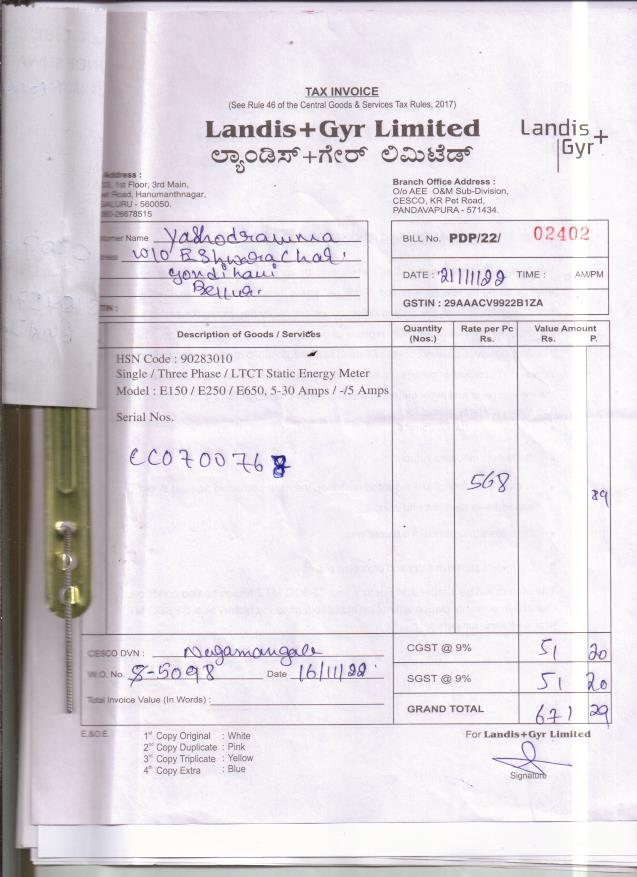 TAX INVOICE
(See Rule 46 of the Central Goods & Services Tax Rules, 2017)
Landis+Gyr Limited
ಲ್ಯಾಂಡಿಸ್+ಗೇರ್ ಲಿಮಿಟೆಡ್
Landis+
Gyr
Address :
1st Floor, 3rd Main,
Road, Hanumanthnagar,
- 560050.
-26678515
Branch Office Address :
O/o AEE O&M Sub-Division,
CESCO, KR Pet Road,
PANDAVAPURA - 571434.
Name Yashodramma
W/o Eshwarachar
Bellur
BILL No. PDP/22/ 02402
DATE : 21/11/22 TIME : AM/PM
GSTIN : 29AAACV9922B1ZA
Description of Goods / Services Quantity (Nos.) Rate per Pc Rs. Value Amount Rs. P.
HSN Code : 90283010
Single / Three Phase / LTCT Static Energy Meter
Model : E150 / E250 / E650, 5-30 Amps / -/5 Amps
Serial Nos.
CC0700768
568 89
CESCO DVN : Nagamangala
W.O. No. 8-5098 Date 16/11/22
Total Invoice Value (In Words) :
CGST @ 9% 51 20
SGST @ 9% 51 20
GRAND TOTAL 671 29
E.&O.E.
1st Copy Original : White
2nd Copy Duplicate : Pink
3rd Copy Triplicate : Yellow
4th Copy Extra : Blue
For Landis+Gyr Limited
Signature